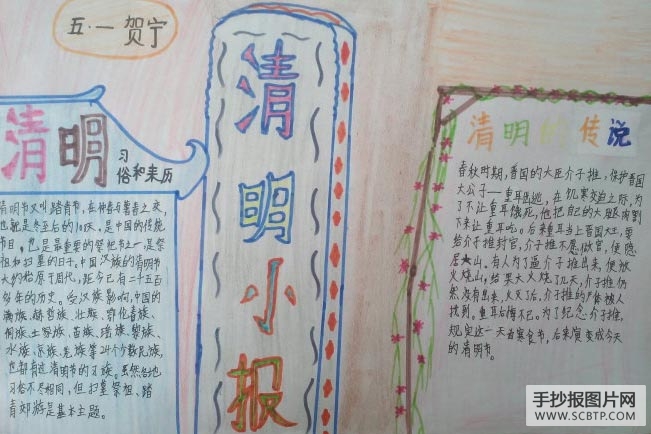 五·一 贺宁
清明
习
俗和来历
清明节又叫踏青节,在仲春与暮春之交,
也就是冬至后的108天,是中国的传统
节日,也是最重要的祭祀节之一,是祭
祖和扫墓的日子。中国汉族的清明节
大约始原于周代,距今已有二千五百
多年的历史。受汉族影响,中国的
满族、赫哲族、壮族、鄂伦春族、
侗族、土家族、苗族、瑶族、黎族、
水族、京族、羌族等24个少数民族,
也都有过清明节的习俗。虽然各地
习俗不尽相同,但扫墓祭祖、踏
青郊游是基本主题。
清明小报
清明的传说
春秋时期,晋国的大臣介子推,保护晋国
大公子——重耳出逃,在饥寒交迫之际,为
了不让重耳饿死,他把自己的大腿肉割
下来让重耳吃。后来重耳当上晋国大王,要
给介子推封官,介子推不愿做官,便隐
居山。有人为了逼介子推出来,便放
火烧山,结果大火烧了几天,介子推仍
然没有出来,火灭了后,介子推的尸骨被人
找到。重耳后悔不已。为了纪念介子推,
规定这一天为寒食节,后来演变成今天
的清明节。
手抄报图片网
WWW.SCBTP.COM